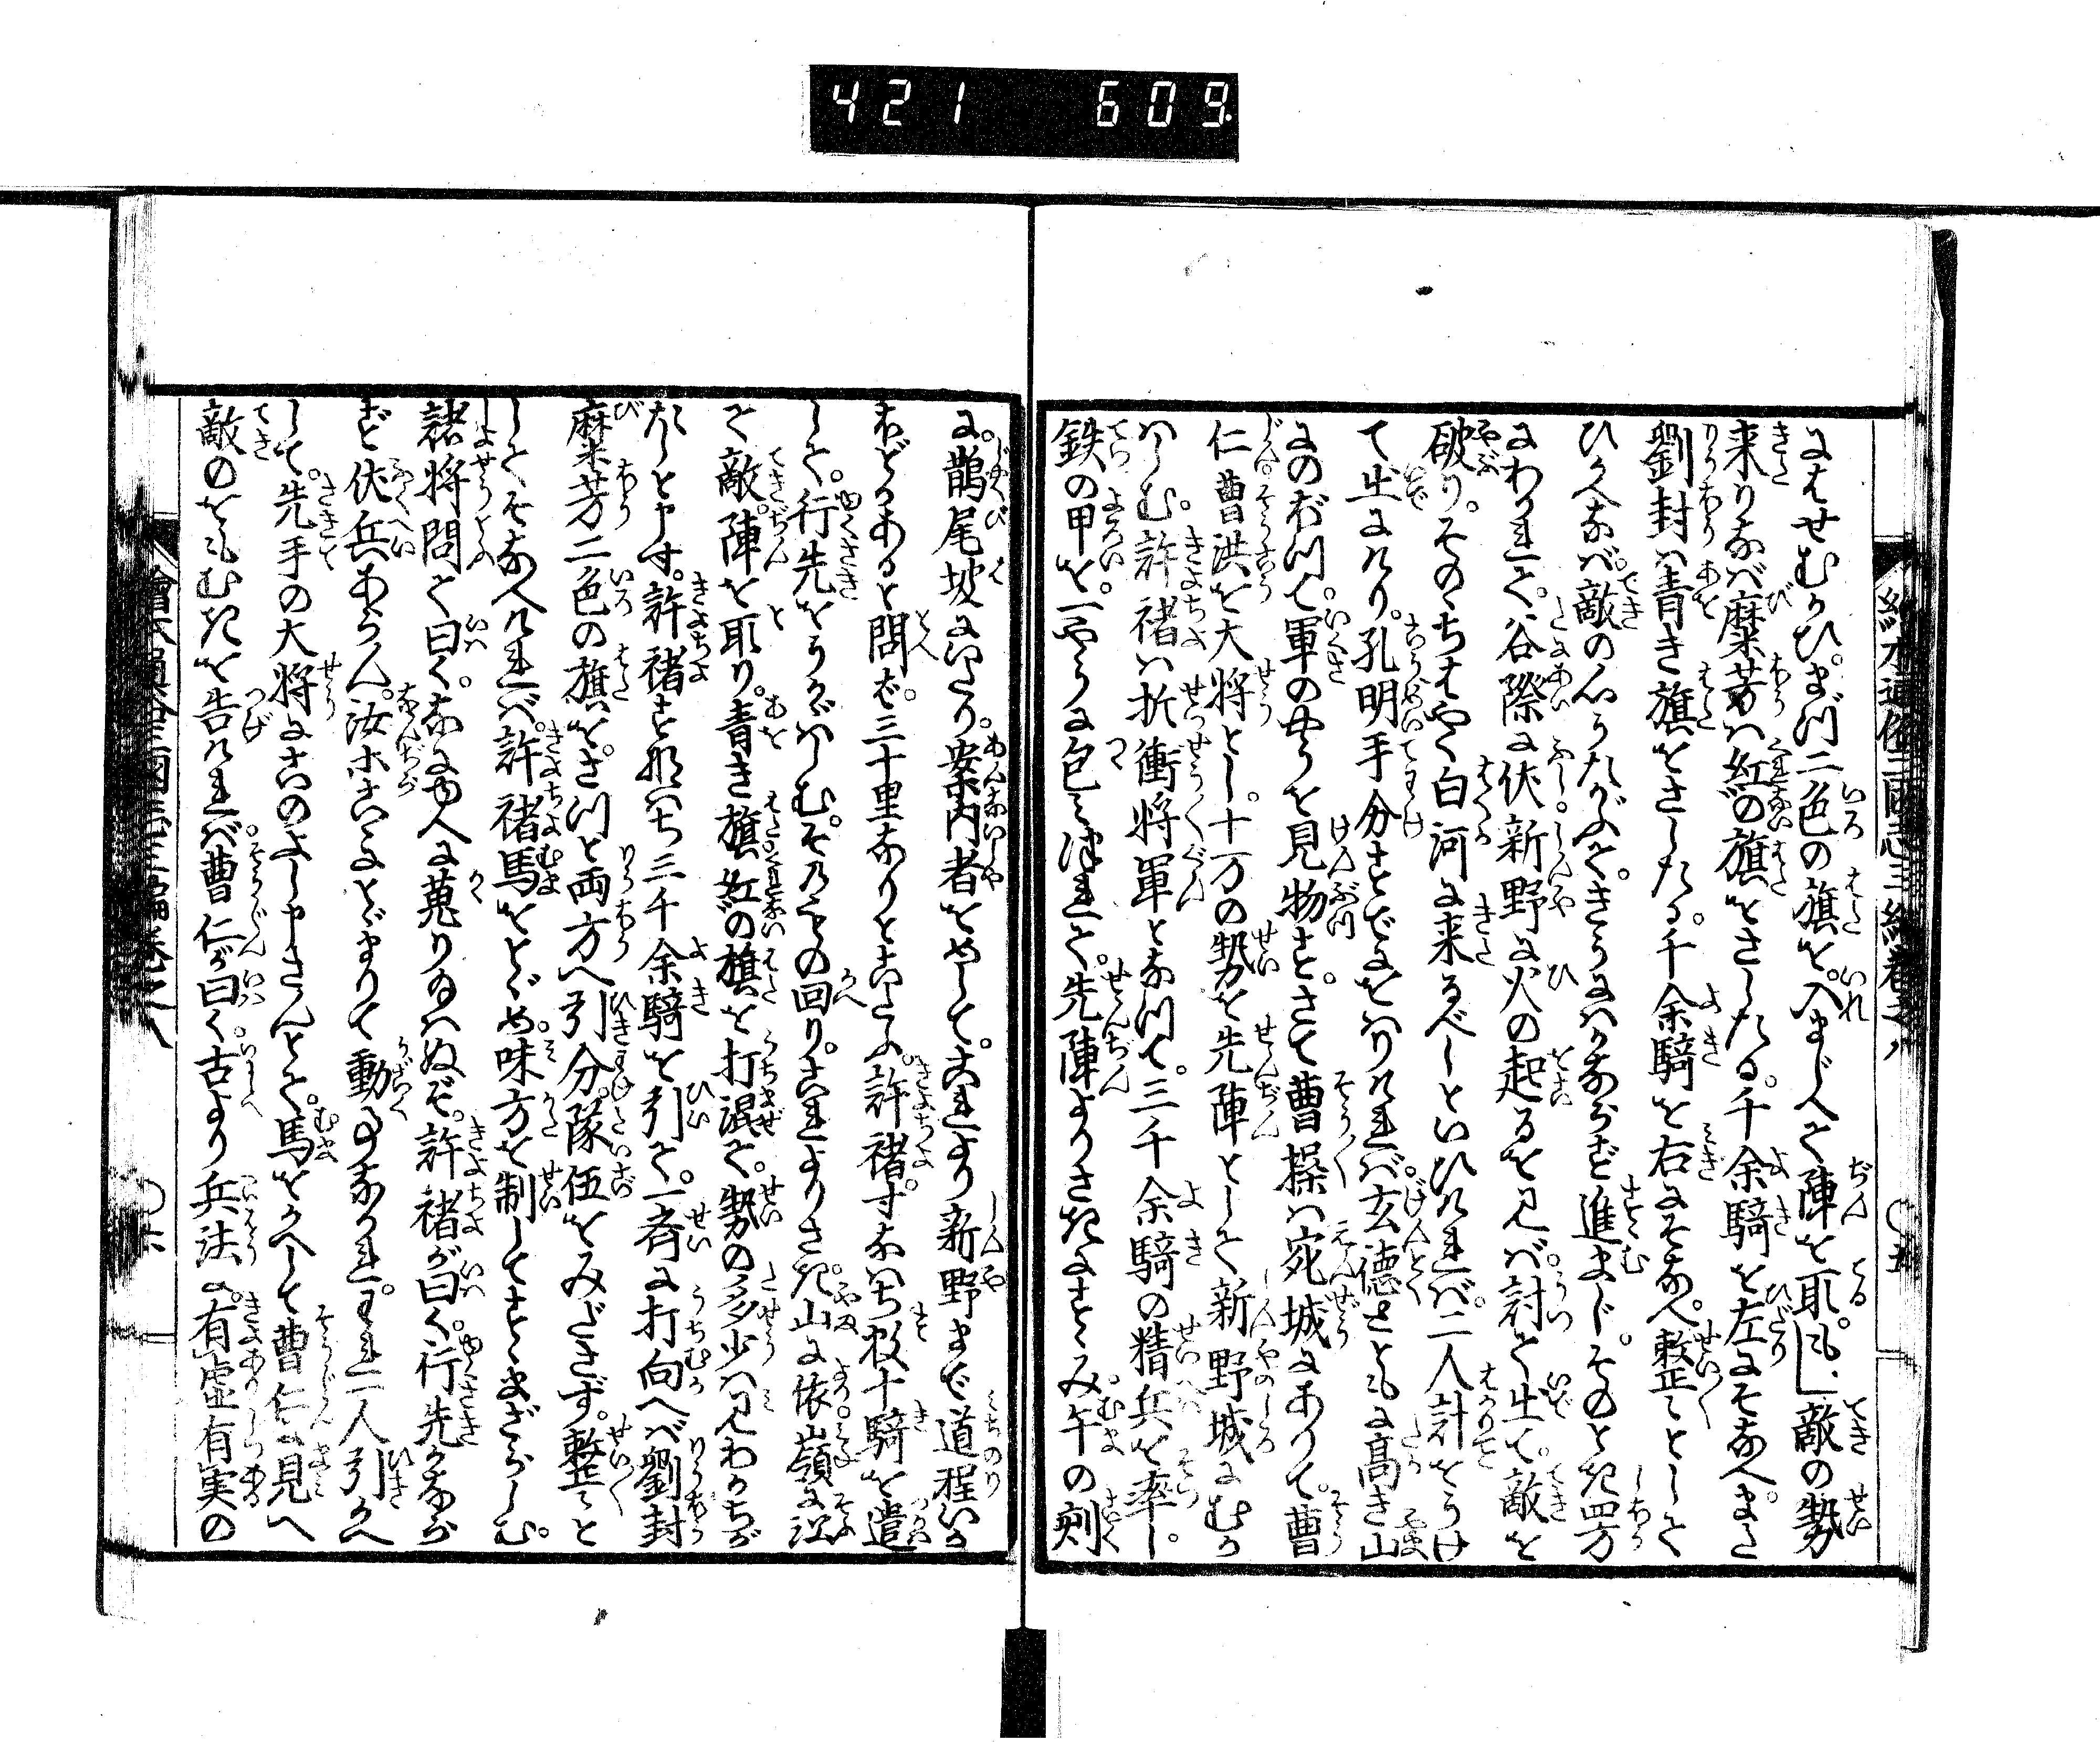 421 609
絵本通俗三国志三編巻之八 〇五
にはせむかひ。まづ二色の旗を。入まじへて陣を取。もし敵の勢
来りなば。糜芳は紅の旗をさしたる。千余騎を左にそなへ。また
劉封は青き旗をさしたる。千余騎を右にそなへ。整〻として
ひかへなば。敵の心うたがふて。きうにはかならず進まじ。そのとき四方
にわかれて。谷際に伏。新野に火の起るを見ば。討て出て。敵を
破り。そのゝちはやく白河に来るべしといひければ。二人計をうけ
て出にけり。孔明手分すでにをはりければ。玄徳とともに高き山
にのぼつて。軍のやうを見物す。さて曹操は宛城にありて。曹
仁曹洪を大将とし。十万の勢を先陣として新野城にむか
はしむ。許褚は折衝将軍となつて。三千余騎の精兵を率し。
鉄の甲を。一やうに包みつれて。先陣よりさきにすゝみ。午の刻
に。鵲尾坡にいたり。案内者をめして。これより新野まで道程いか
ほどかあると問ば。三十里なりとこたふ。許褚すなはち数十騎を遣
して。行先をうかゞはしむ。そのもの回り。これよりさき。山に依嶺に沿
て敵陣を取り。青き旗紅の旗を打混て。勢の多少は見わかちが
たしと申す。許褚すなはち三千余騎を引て。一斉に打向へば劉封
糜芳二色の旗をさつと両方へ引分。隊伍をみださず。整〻と
してそなへければ。許褚馬をとゞめ。味方を制してすゝまざらしむ。
諸将問て曰く。なにゆへに蒐り給はぬぞ。許褚が曰く。行先かならず
伏兵あらん。汝ホこゝにとゞまりて動ことなかれ。われ一人引かへ
して。先手の大将にこのよし申さんとて。馬をかへして曹仁に見へ
敵のをもむきを告ければ。曹仁が曰く。古より兵法に。有虚有実の
繪本通俗三國志三編巻之八 〇六